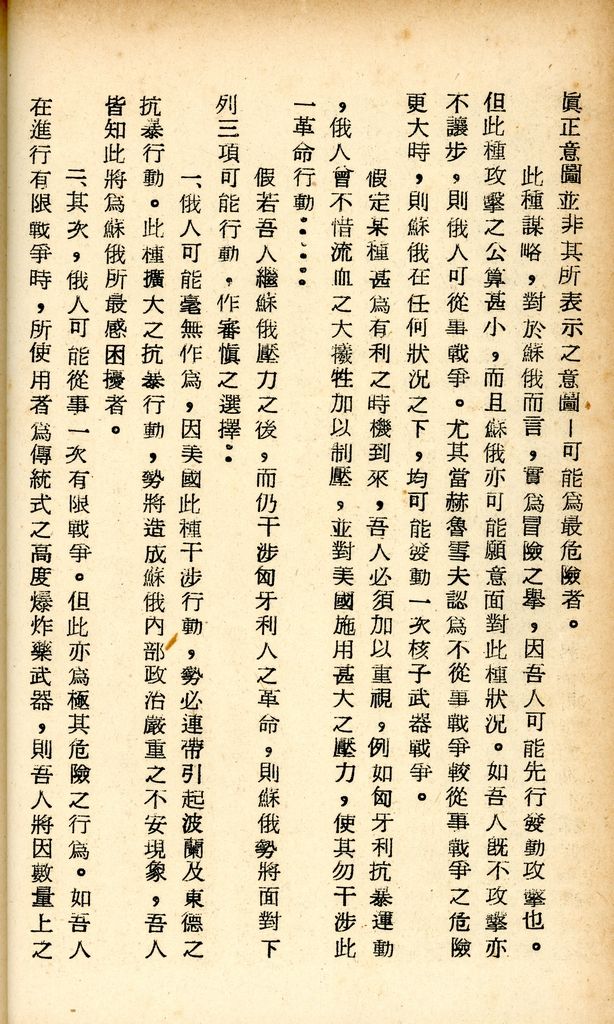 眞正意圖並非其所表示之意圖—可能爲最危險者。
此種謀略，對於蘇俄而言，實爲冒險之擧，因吾人可能先行發動攻擊也。
但此種攻擊之公算甚小，而且蘇俄亦可能願意面對此種狀況。如吾人旣不攻擊亦
不讓步，則俄人可從事戰爭。尤其當赫魯雪夫認爲不從事戰爭較從事戰爭之危險
更大時，則蘇俄在任何狀況之下，均可能發動一次核子武器戰爭。
假定某種甚爲有利之時機到來，吾人必須加以重視，例如匈牙利抗暴運動
，俄人曾不惜流血之大犧牲加以制壓，並對美國施用甚大之壓力，使其勿干涉此
一革命行動：：：
假若吾人繼蘇俄壓力之後，而仍干涉匈牙利人之革命，則蘇俄勢將面對下
列三項可能行動，作審愼之選擇：
一、俄人可能毫無作爲，因美國此種干涉行動，勢必連帶引起波蘭及東德之
抗暴行動。此種擴大之抗暴行動，勢將造成蘇俄內部政治嚴重之不安現象，吾人
皆知此將爲蘇俄所最感困擾者。
二、其次，俄人可能從事一次有限戰爭。但此亦爲極其危險之行爲。如吾人
在進行有限戰爭時，所使用者爲傳統式之高度爆炸藥武器，則吾人將因數量上之